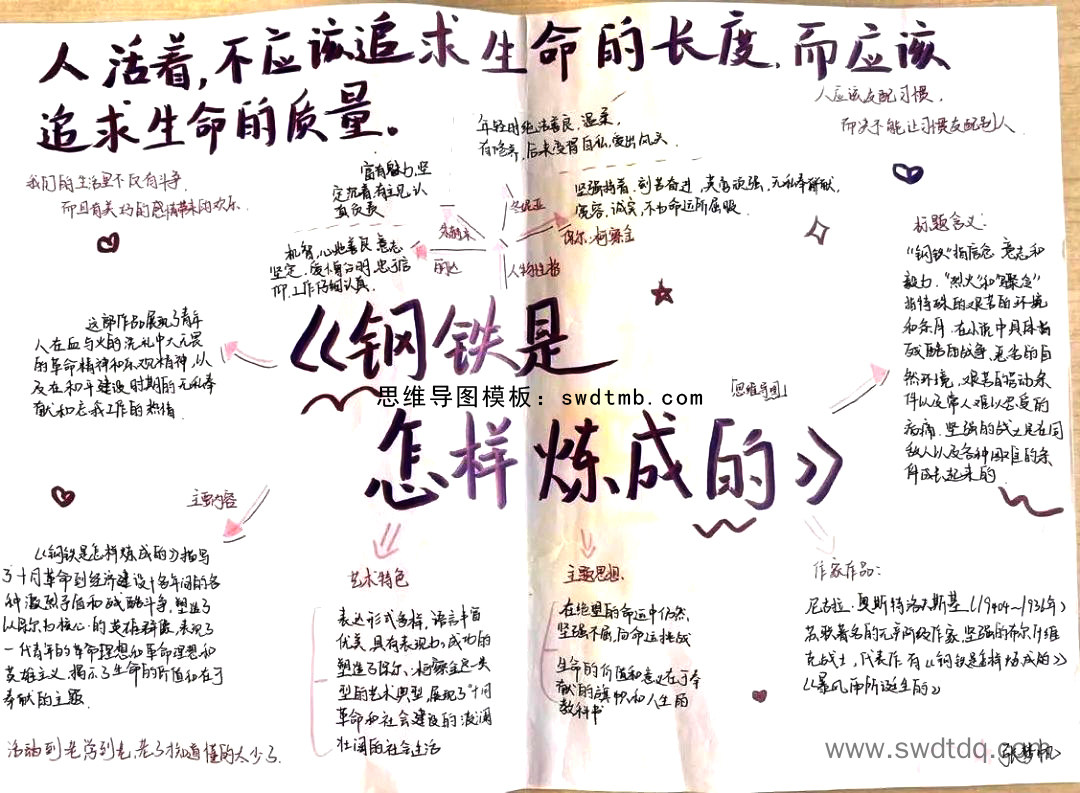 人活着,不应该追求生命的长度,而应该
追求生命的质量。
人应该支配习惯,
而决不能让习惯支配人
我们的生活里不仅有斗争,
而且有美好的感情带来的欢乐.
年轻时纯洁善良,温柔,
有修养,后来变得自私,爱出风头
富有魅力,坚
定沉着,有主见,认
真负责
朱赫来
冬妮亚
坚强执着,刻苦奋进,英勇顽强,无私奉献,
宽容,诚实,不为命运所屈服
保尔·柯察金
机智,心地善良,意志
坚定,爱憎分明,忠于信
仰,工作仔细认真.
丽达
人物性格
标题含义:
"钢铁"指信念 意志和
毅力."烈火"和"骤冷"
指特殊的艰苦的环境
和条件.在小说中具体指
残酷的战争,恶劣的自
然环境,艰苦的劳动条
件以及常人难以忍受的
病痛.坚强的战士是在同
敌人以及各种困难的条
件成长起来的
这部作品展现了青年
人在血与火的洗礼中大无畏
的革命精神和乐观精神,以
及在和平建设时期的无私奉
献和忘我工作的热情.
《钢铁是
怎样炼成的》
思维导图模板:swdtmb.com
「思维导图」
主要内容
《钢铁是怎样炼成的》描写
了十月革命到经济建设十多年间的各
种激烈矛盾和残酷斗争,塑造了
以保尔为核心的英雄群像,表现了
一代青年的革命理想和革命理想和
英雄主义,揭示了生命的价值和在于
奉献的主题.
艺术特色
表达形式多样,语言丰富
优美,具有表现力.成功的
塑造了保尔·柯察金这一典
型的艺术典型,展现了十月
革命和社会建设的波澜
壮阔的社会生活
主题思想:
在绝望的命运中仍然
坚强不屈,向命运挑战
生命的价值和意义在于奉
献的旗帜和人生的
教科书
作家作品:
尼古拉·奥斯特洛夫斯基(1904~1936年)
苏联著名的无产阶级作家,坚强的布尔什维
克战士,代表作有《钢铁是怎样炼成的》
《暴风雨所诞生的》
活到老,学到老,老了才知道懂的太少了.
www.swdtdq.com